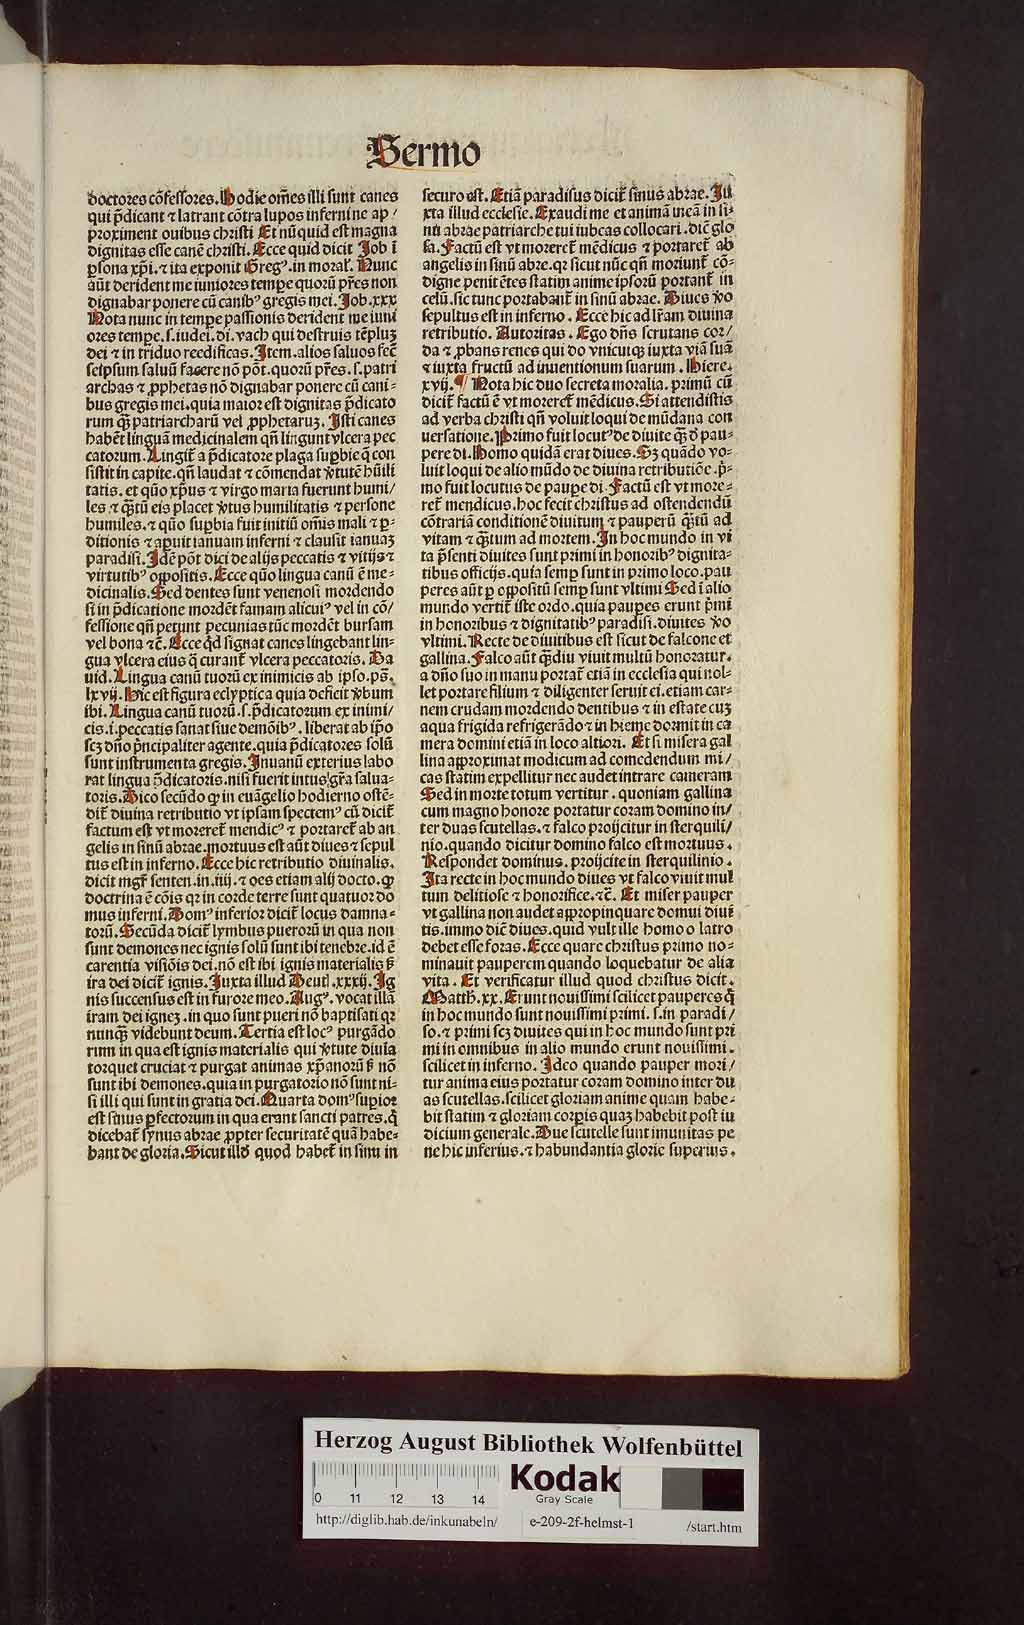 Sermo
doctores cõfessores. Hodie om̃es illi sunt canes
qui p̃dicant ⁊ latrant cõtra lupos inferni ne ap/
proximent ouibus christi Et nũquid est magna
dignitas esse canẽ christi. Ecce quid dicit Job ĩ
ꝑsona xp̃i. ⁊ ita exponit Greg⁹. in moral̃. Nunc
aũt derident me iuniores tempe quorũ p̃res non
dignabar ponere cũ canib⁹ gregis mei. Job.xxx
Nota nunc in tempe passionis derident me iuni
ores tempe. s. iudei. di. vach qui destruis tẽpluꝫ
dei ⁊ in triduo reedificas. Item. alios saluos fec̃
seipsum saluũ facere nõ põt. quorũ p̃res. s. patri
archas ⁊ ꝓphetas nõ dignabar ponere cũ cani=
bus gregis mei. quia maior est dignitas p̃dicato
rum qꝫ patriarcharũ vel ꝓphetaruꝫ. Isti canes
habẽt linguã medicinalem qñ lingunt vlcera pec
catorum. Lingit̃ a p̃dicatore plaga supbie q̃ con
sistit in capite. qñ laudat ⁊ cõmendat v̾tutẽ hũili
tatis. et quõ xp̃us ⁊ virgo maria fuerunt humi/
les ⁊ qꝫtũ eis placet v̾tus humilitatis ⁊ persone
humiles. ⁊ quõ supbia fuit initiũ om̃is mali ⁊ ꝑ=
ditionis ⁊ apuit ianuam inferni ⁊ clausit ianuaꝫ
paradisi. Idẽ põt dici de alijs peccatis ⁊ vitijs ⁊
virtutib⁹ oppositis. Ecce quõ lingua canũ ẽ me=
dicinalis. Sed dentes sunt venenosi mordendo
si in p̃dicatione mordẽt famam alicui⁹ vel in cõ/
fessione qñ petunt pecunias tũc mordẽt bursam
vel bona ⁊c̃. Ecce qd̃ signat canes lingebant lin=
gua vlcera eius q̃ curant̃ vlcera peccatoris. Da
uid. Lingua canũ tuorũ ex inimicis ab ipso. ps̃.
lxvij. Hic est figura eclyptica quia deficit v̾bum
ibi. Lingua canũ tuorũ. s. p̃dicatorum ex inimi/
cis. i. peccatis sanat siue demõib⁹. liberat ab ip̃o
scꝫ dño p̃ncipaliter agente. quia p̃dicatores solũ
sunt instrumenta gregis. Inuanũ exterius labo
rat lingua p̃dicatoris. nisi fuerit intus gr̃a salua=
toris. Dico secũdo ꝙ in euãgelio hodierno ostẽ=
dit̃ diuina retributio vt ipsam spectem⁹ cũ dicit̃
factum est vt moreret̃ mendic⁹ ⁊ portaret̃ ab an
gelis in sinũ abrae. mortuus est aũt diues ⁊ sepul
tus est in inferno. Ecce hic retributio diuinalis.
dicit mgr̃ senten. in .iiij. ⁊ oẽs etiam alij docto. ꝙ
doctrina ẽ cõis qꝛ in corde terre sunt quatuor do
mus inferni. Dom⁹ inferior dicit̃ locus damna=
torũ. Secũda dicit̃ lymbus puerorũ in qua non
sunt demones nec ignis solũ sunt ibi tenebre. id ẽ
carentia visiõis dei. nõ est ibi ignis materialis ß
ira dei dicit̃ ignis. Juxta illud Deut̃. xxxij. Ig
nis succensus est in furore meo. Aug⁹. vocat illã
iram dei igneꝫ. in quo sunt pueri nõ baptisati qꝛ
nunqꝫ videbunt deum. Tertia est loc⁹ purgãdo
rum in qua est ignis materialis qui v̾tute diuia
torquet cruciat ⁊ purgat animas xp̃anorũ ß nõ
sunt ibi demones. quia in purgatorio nõ sunt ni=
si illi qui sunt in gratia dei. Quarta dom⁹ supior
est sinus ꝑfectorum in qua erant sancti patres. q̃
dicebat̃ synus abrae ꝓpter securitatẽ quã habe=
bant de gloria. Sicut illd̾ quod habet̃ in sinu in
securo est. Etiã paradisus dicit̃ sinus abrae. Ju
xta illud ecclesie. Exaudi me et animã meã in si=
nu abrae patriarche tui iubeas collocari. dic̃ glo
sa. Factũ est vt moreret̃ mẽdicus ⁊ portaret̃ ab
angelis in sinũ abre. qꝛ sicut nũc qñ moriunt̃ cõ=
digne penitẽtes statim anime ipsorũ portant̃ in
celũ. sic tunc portabant̃ in sinũ abrae. Diues v̾o
sepultus est in inferno. Ecce hic ad lr̃am diuina
retributio. Autoritas. Ego dñs scrutans cor/
da ⁊ ꝓbans renes qui do vnicuiqꝫ iuxta viã suã
⁊ iuxta fructũ ad inuentionum suarum. Hiere.
xvij. ¶ Nota hic duo secreta moralia. primũ cũ
dicit̃ factũ ẽ vt moreret̃ mẽdicus. Si attendistis
ad verba christi qñ voluit loqui de mũdana con
uersatione. Primo fuit locut⁹ de diuite qꝫ d̾ pau=
pere di. Homo quidã erat diues. Sꝫ quãdo vo=
luit loqui de alio mũdo de diuina retributiõe. p̃=
mo fuit locutus de paupe di. Factũ est vt more=
ret̃ mendicus. hoc fecit christus ad ostendendũ
cõtrariã conditionẽ diuitum ⁊ pauperũ qꝫtũ ad
vitam ⁊ qꝫtum ad mortem. In hoc mundo in vi
ta p̃senti diuites sunt primi in honorib⁹ dignita=
tibus officijs. quia semp sunt in primo loco. pau
peres aũt ꝑ oppositũ semp sunt vltimi Sed ĩ alio
mundo vertit̃ iste ordo. quia paupes erunt p̃mi
in honoribus ⁊ dignitatib⁹ paradisi. diuites v̾o
vltimi. Recte de diuitibus est sicut de falcone et
gallina. Falco aũt qꝫdiu viuit multũ honoratur.
a dño suo in manu portat̃ etiã in ecclesia qui nol=
let portare filium ⁊ diligenter seruit ei. etiam car=
nem crudam mordendo dentibus ⁊ in estate cuꝫ
aqua frigida refrigerãdo ⁊ in hieme dormit in ca
mera domini etiã in loco altiori. Et si misera gal
lina approximat modicum ad comedendum mi/
cas statim expellitur nec audet intrare cameram
Sed in morte totum vertitur. quoniam gallina
cum magno honore portatur coram domino in/
ter duas scutellas. ⁊ falco proijcitur in sterquili/
nio. quando dicitur domino falco est mortuus.
Respondet dominus. proijcite in sterquilinio.
Ita recte in hoc mundo diues vt falco viuit mul
tum delitiose ⁊ honorifice. ⁊c̃. Et miser pauper
vt gallina non audet appropinquare domui diui
tis. immo dic̃ diues. quid vult ille homo o latro
debet esse foras. Ecce quare christus primo no=
minauit pauperem quando loquebatur de alia
vita. Et verificatur illud quod christus dicit.
Matth. xx. Erunt nouissimi scilicet pauperes q̃
in hoc mundo sunt nouissimi primi. s. in paradi/
so. ⁊ primi scꝫ diuites qui in hoc mundo sunt pri
mi in omnibus in alio mundo erunt nouissimi.
scilicet in inferno. Ideo quando pauper mori/
tur anima eius portatur coram domino inter du
as scutellas. scilicet gloriam anime quam habe=
bit statim ⁊ gloriam corpis quaꝫ habebit post iu
dicium generale. Due scutelle sunt imunitas pe
ne hic inferius. ⁊ habundantia glorie superius.
Herzog August Bibliothek Wolfenbüttel
0 11 12 13 14
Kodak
Gray Scale
http://diglib.hab.de/inkunabeln/ e-209-2f-helmst-1 /start.htm